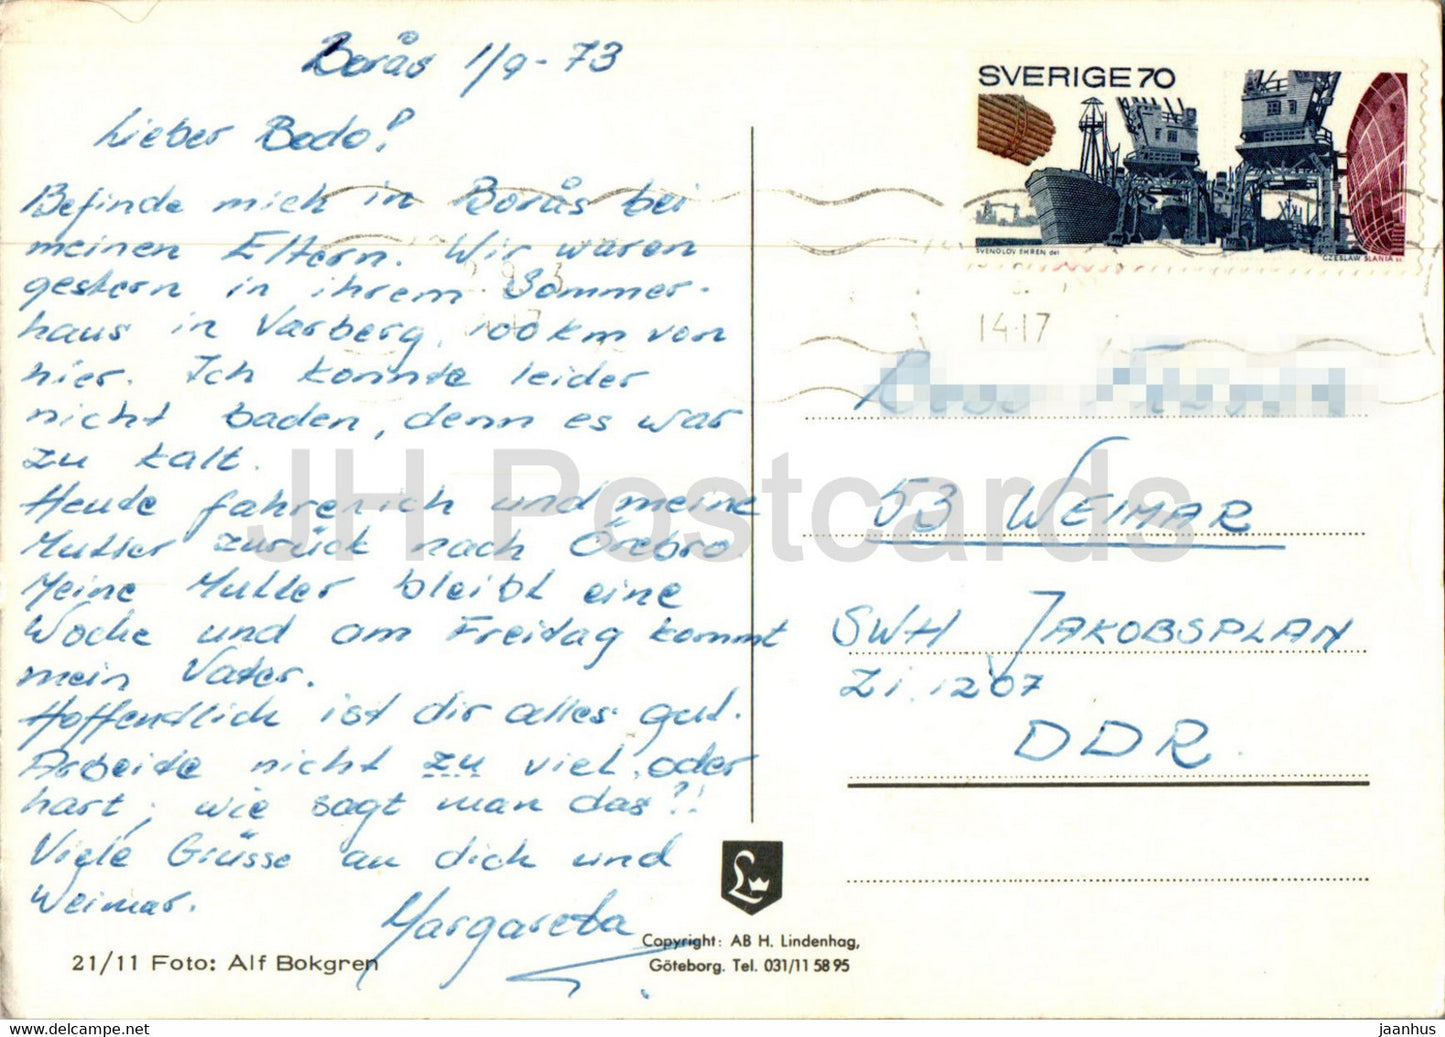 Borås 1/9-73
Lieber Bodo!
Befinde mich in Borås bei
meinen Eltern. Wir waren
gestern in ihrem Sommer-
haus in Varberg, 100 km von
hier. Ich konnte leider
nicht baden, denn es war
zu kalt.
Heute fahren ich und meine
Mutter zurück nach Örebro
Meine Mutter bleibt eine
Woche und am Freitag kommt
mein Vater.
Hoffentlich ist dir alles gut.
Arbeite nicht zu viel, oder
hart, wie sagt man das?!
Viele Grüsse an dich und
Weimar.
Margareta
21/11 Foto: Alf Bokgren
Copyright: AB H. Lindenhag,
Göteborg. Tel. 031/11 58 95
SVERIGE 70
SVENOLOV EHREN del
CZESLAW SLANIA sc
14-17
53 WEIMAR
SWH JAKOBSPLAN
Zi. 1207
DDR.
JH Postcards
hippostcard.com
jaanhus